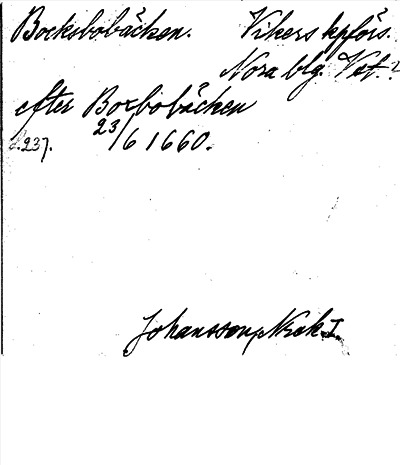 Bocksbobäcken. Vikers kpförs.
Nora blg. Vst.
efter Borbobäcken
s. 237. 23/6 1660.
Johansson, Nzak I.